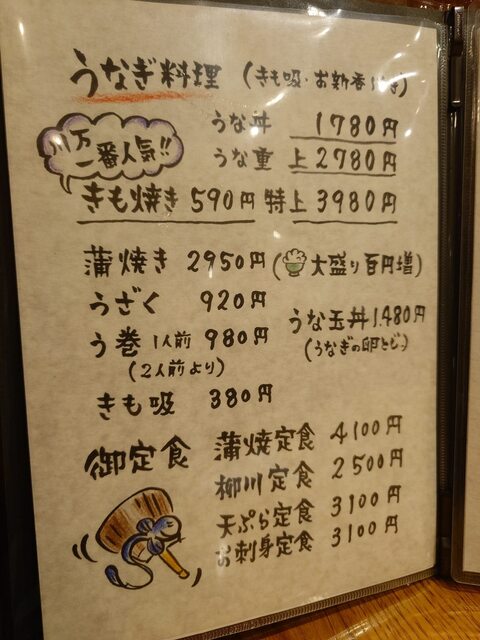 うなぎ料理 (きも吸・お新香付き)
うな丼 1780円
一番人気!!
うな重 上 2780円
きも焼き 590円 特上 3980円
蒲焼き 2950円 (大盛り百円増)
うざく 920円
うな玉丼 1.480円
う巻 1人前 980円
(うなぎの卵とじ)
(2人前より)
きも吸 380円
御定食
蒲焼定食 4100円
柳川定食 2500円
天ぷら定食 3100円
お刺身定食 3100円